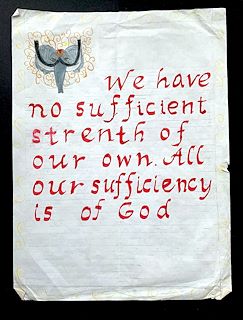 We have
no sufficient
strenth of
our own. All
our sufficiency
is of God